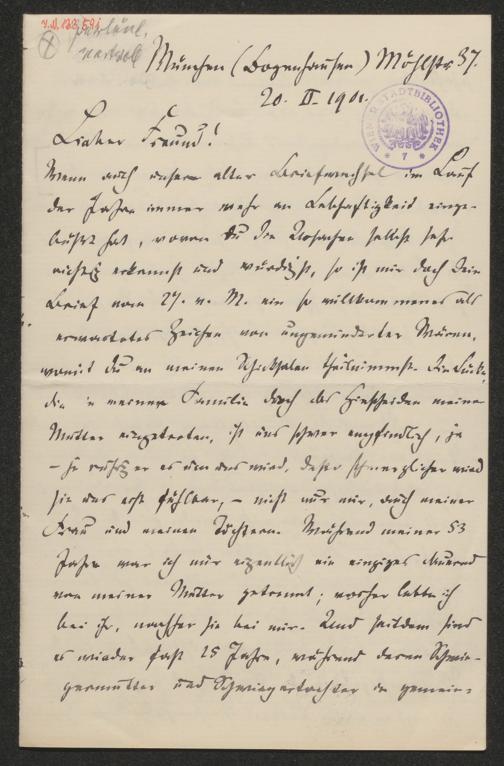 J.N. 122.591
München (Bogenhausen) Möhlstr 37.
20. II 1901.
WIENER STADTBIBLIOTHEK
* 7 *
Lieber Freund!
Wenn auch unser alter Briefwechsel im Lauf
der Jahre immer mehr an Lebhaftigkeit einge-
büßt hat, wovon Du die Ursachen selbst sehr
richtig erkennst und würdigst, so ist mir doch Dein
Brief vom 27. v. M. ein so willkommenes als
erwartetes Zeichen von ungeminderter Wärme,
womit Du an meinen Schicksalen theilnimmst. Die Lücke,
die in meiner Familie durch das Hinscheiden meiner
Mutter eingetreten, ist uns schwer empfindlich, ja
– je ruhiger es um uns wird, desto schmerzlicher wird
sie uns erst fühlbar, – nicht nur mir, auch meiner
Frau und meinen Töchtern. Während meiner 53
Jahre war ich nur eigentlich ein einziges dauernd
von meiner Mutter getrennt; vorher lebte ich
bei ihr, nachher sie bei mir. Und seitdem sind
es wieder fast 25 Jahre, während deren Schwie-
germutter und Schwiegertochter in gemein-